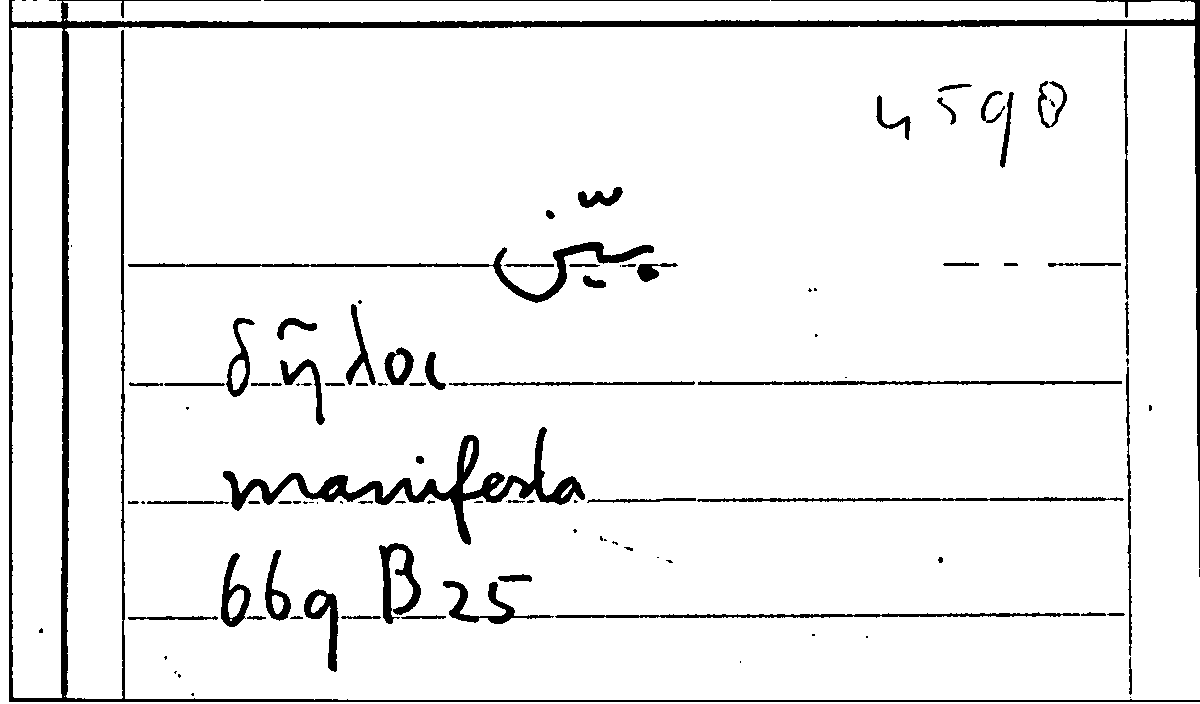 4590
بيّن
δῆλοι
manifesta
669 B 25